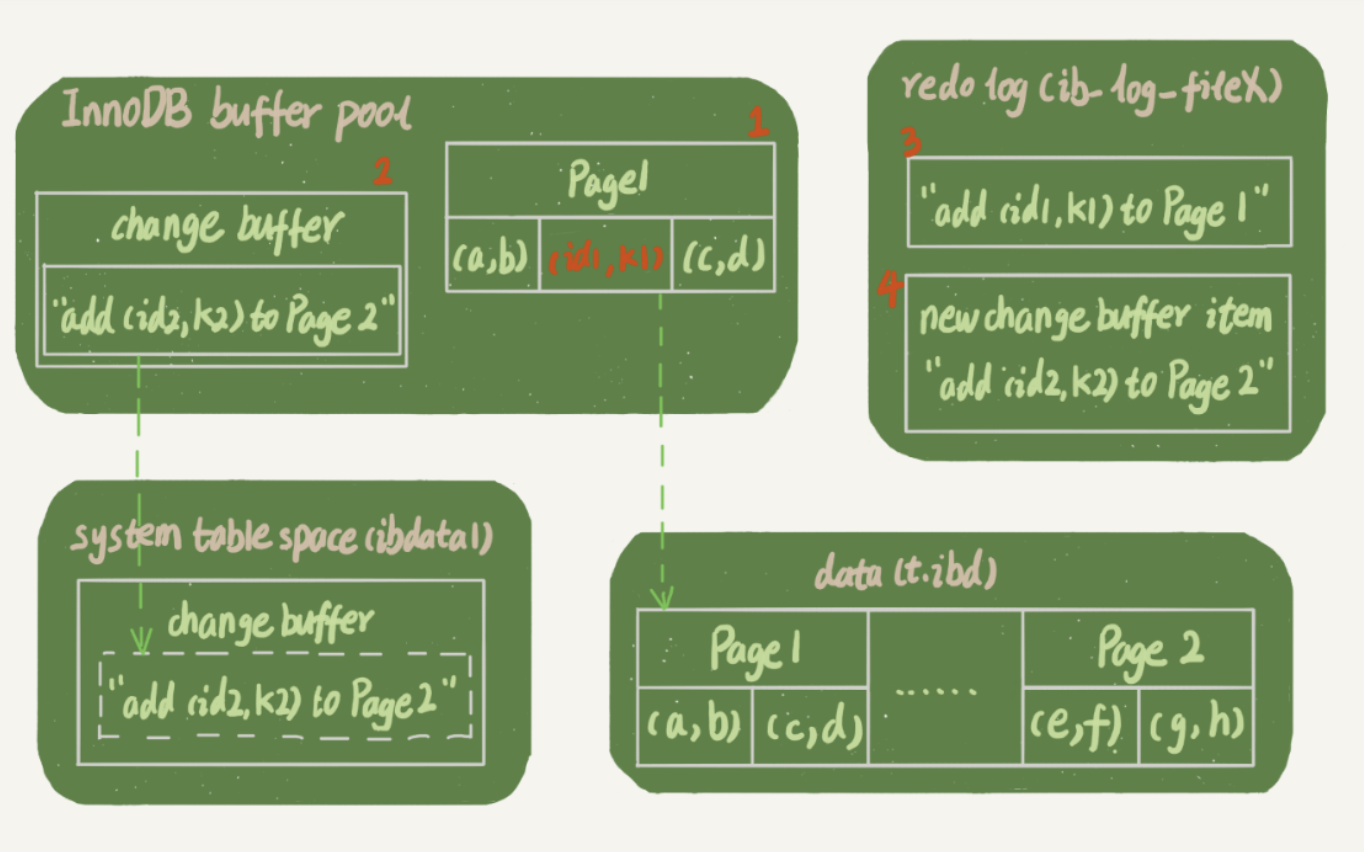 InnoDB buffer pool
2
change buffer
"add (id2, k2) to Page 2"
1
Page1
(a,b) (id1, k1) (c,d)
redo log (ib_log_fileX)
3
"add (id1, k1) to Page 1"
4
new change buffer item
"add (id2, k2) to Page 2"
system table space (ibdata1)
change buffer
"add (id2, k2) to Page 2"
data (t.ibd)
Page 1 ...... Page 2
(a,b) (c,d) (e,f) (g,h)